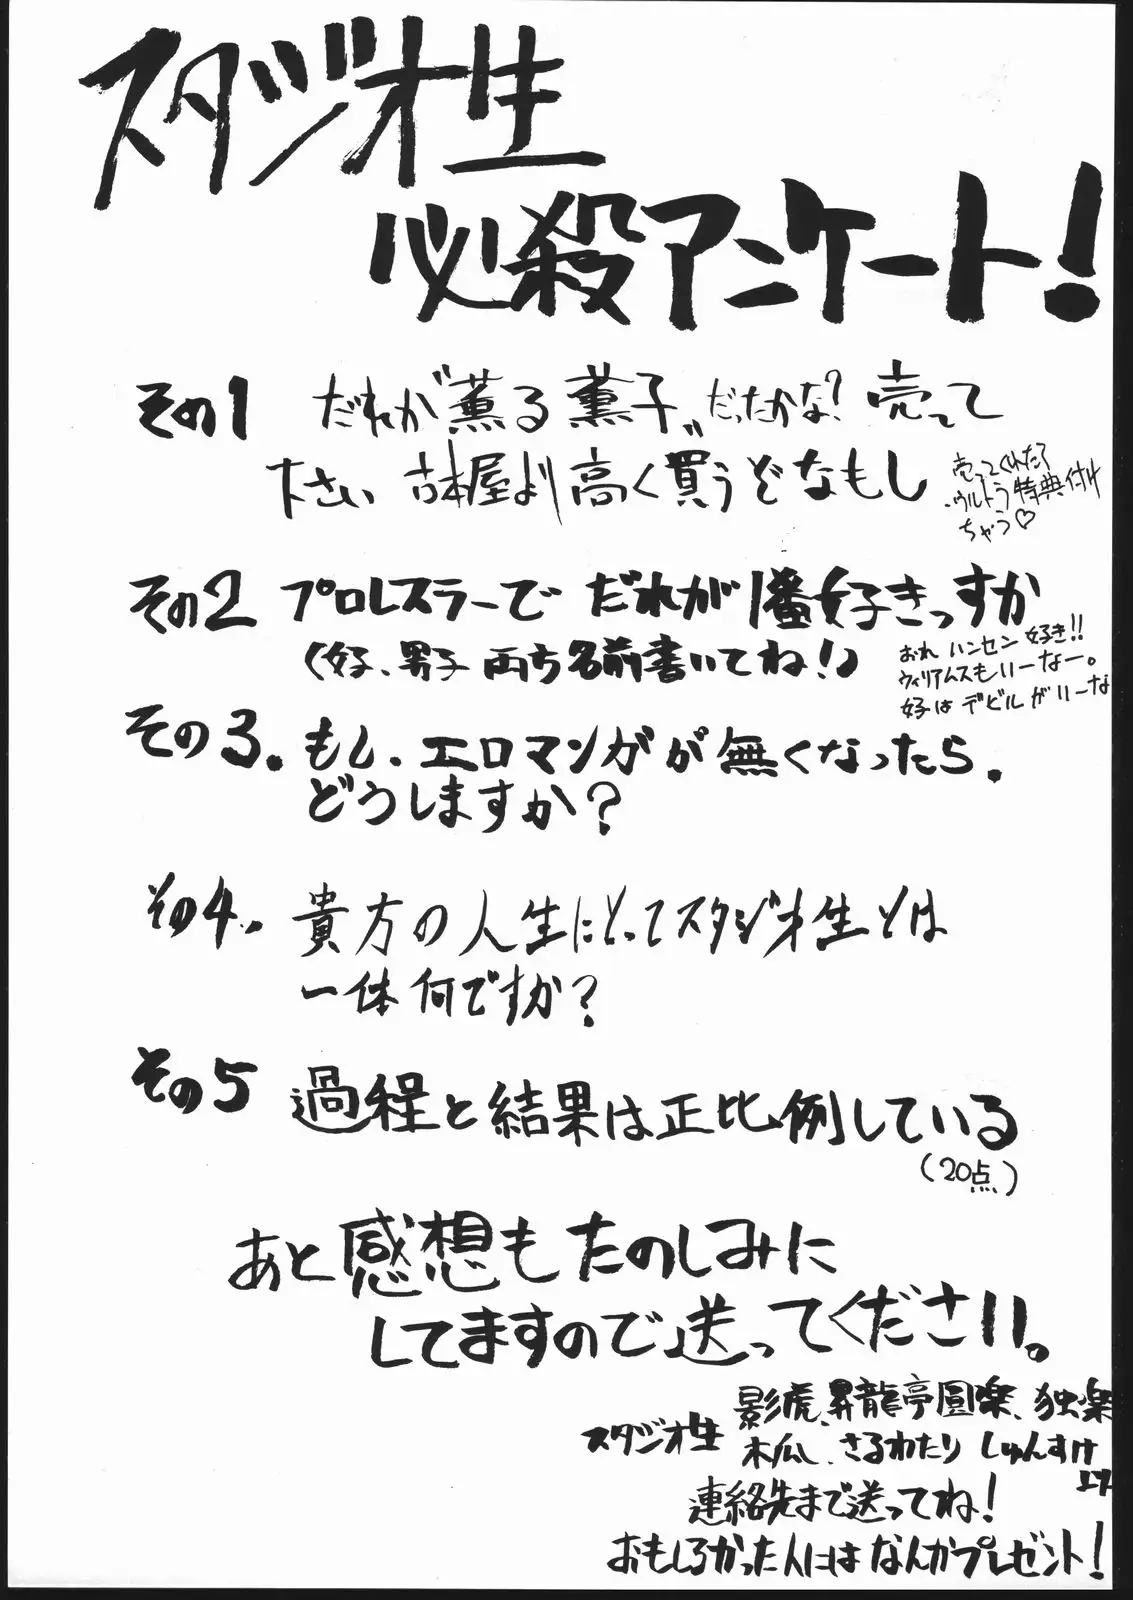 スタジオ生
必殺アンケート!
その1 だれが"薫る薫子"だったかな?売って
下さい 古本屋より高く買うぞなもし
売ってくれたら
ウルトラ特典付け
ちゃう♡
その2 プロレスラーで だれが1番好きっすか
(女子、男子 両方名前書いてね!)
おれ ハンセン 好き!!
ウィリアムスもいーなー。
女子は デビルがいーな
その3. もし、エロマンガが無くなったら、
どうしますか?
その4. 貴方の人生にとってスタジオ生とは
一体何ですか?
その5 過程と結果は正比例している
(20点)
あと感想もたのしみに
してますので送ってください。
スタジオ生 影虎、昇龍亭圓楽、独楽
木瓜、さるわたり しゅんすけ
より
連絡先まで送ってね!
おもしろかった人にはなんかプレゼント!